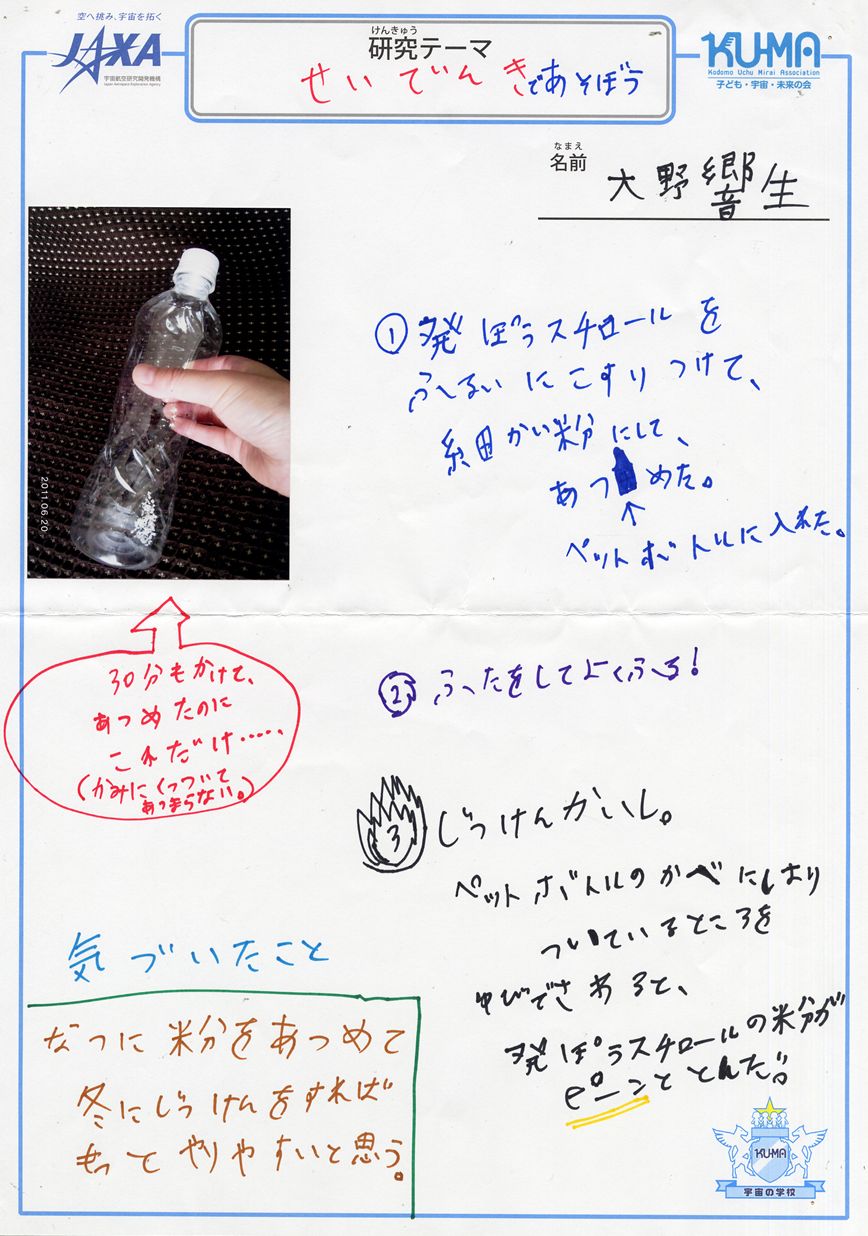 空へ挑み、宇宙を拓く
JAXA
宇宙航空研究開発機構
Japan Aerospace Exploration Agency
けんきゅう
研究テーマ
せいでんきであそぼう
KU-MA
Kodomo Uchu Mirai Association
子ども・宇宙・未来の会
なまえ
名前
大野響生
①発ぽうスチロールを
ふるいにこすりつけて、
細かい粉にして、
あつめた。
↑
ペットボトルに入れた。
2011.06.20
30分もかけて、
あつめたのに
これだけ・・・・・、
(かみにくっついて
あつまらない。)
②ふたをしてよくふる!
3 じっけんかいし。
ペットボトルのかべにしはり
ついているところを
ゆびでさわると、
発ぽうスチロールの粉が
ピーンととんだ!!
気づいたこと
なつに粉をあつめて
冬にじっけんをすれば
もっとやりやすいと思う。
KU-MA
宇宙の学校